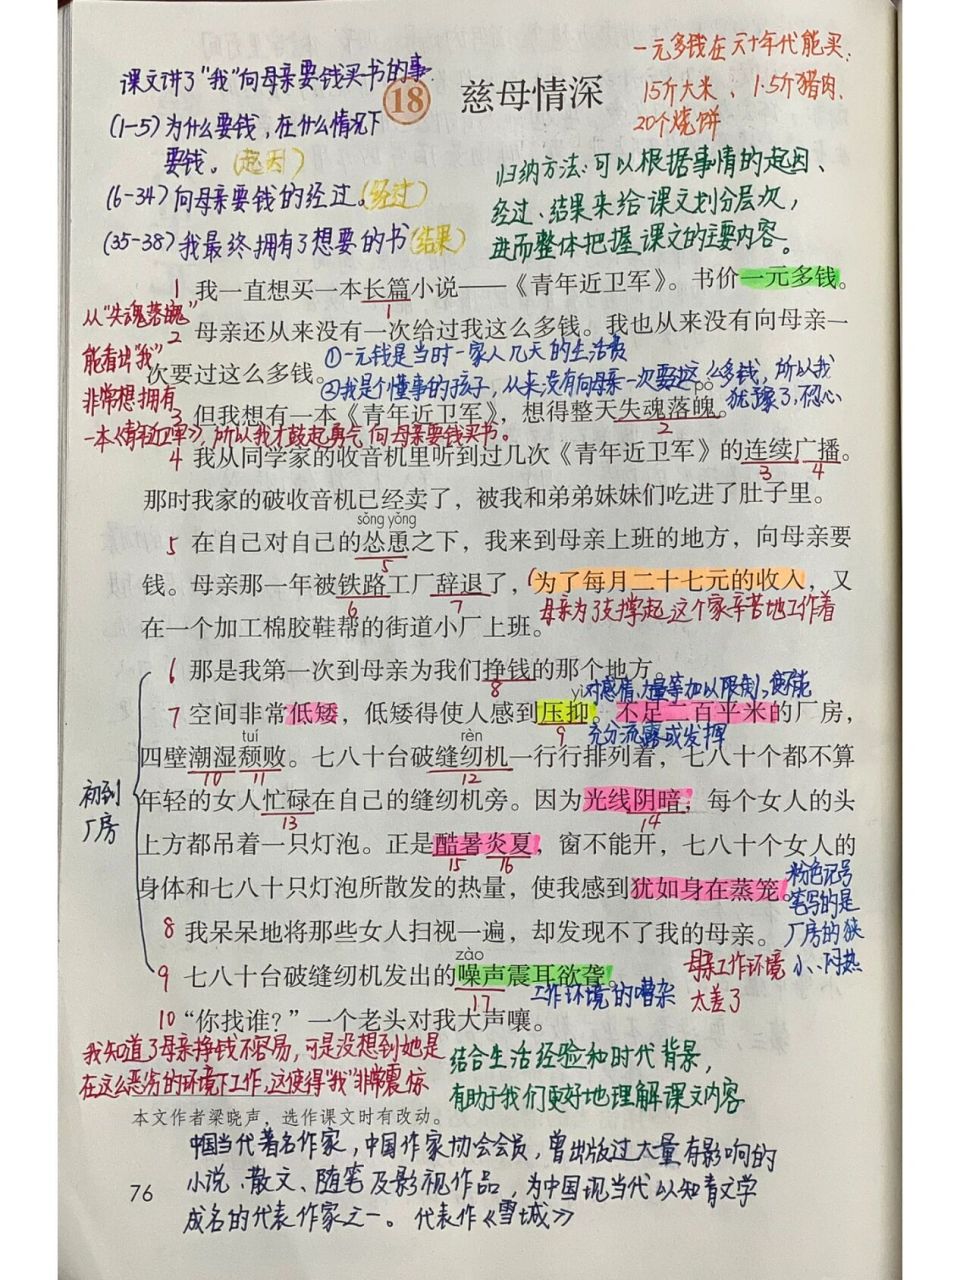 课文讲了"我"向母亲要钱买书的事.
(1-5)为什么要钱，在什么情况下
要钱。(起因)
(6-34)向母亲要钱的经过。(经过)
(35-38)我最终拥有了想要的书(结果)
18 慈母情深
一元多钱在六十年代能买:
15斤大米、1.5斤猪肉、
20个烧饼
归纳方法:可以根据事情的起因、
经过、结果来给课文划分层次，
进而整体把握课文的主要内容。
1 我一直想买一本长篇小说——《青年近卫军》。书价一元多钱。
1
从"失魂落魄"
2 母亲还从来没有一次给过我这么多钱。我也从来没有向母亲一
能看出"我"
①一元钱是当时一家人几天的生活费
次要过这么多钱。
②我是个懂事的孩子，从来没有向母亲一次要这么多钱，所以我
犹豫了，忍心
非常想拥有
pò
3 但我想有一本《青年近卫军》，想得整天失魂落魄。
2
一本《青年近卫军》，所以我才鼓起勇气向母亲要钱买书。
4 我从同学家的收音机里听到过几次《青年近卫军》的连续广播。
3 4
那时我家的破收音机已经卖了，被我和弟弟妹妹们吃进了肚子里。
sǒng yǒng
5 在自己对自己的怂恿之下，我来到母亲上班的地方，向母亲要
5
钱。母亲那一年被铁路工厂辞退了，为了每月二十七元的收入，又
6 7
母亲为了支撑起这个家辛苦地工作着
在一个加工棉胶鞋帮的街道小厂上班。
6 那是我第一次到母亲为我们挣钱的那个地方。
8
yì
对感情、力量等加以限制，使不能
充分流露或发挥
7 空间非常低矮，低矮得使人感到压抑。不足二百平米的厂房，
9
tuí rèn
四壁潮湿颓败。七八十台破缝纫机一行行排列着，七八十个都不算
10 11 12
初到
厂房
年轻的女人忙碌在自己的缝纫机旁。因为光线阴暗，每个女人的头
13 14
上方都吊着一只灯泡。正是酷暑炎夏，窗不能开，七八十个女人的
15 16
身体和七八十只灯泡所散发的热量，使我感到犹如身在蒸笼。
粉色记号
笔写的是
厂房的狭
小、闷热
8 我呆呆地将那些女人扫视一遍，却发现不了我的母亲。
zào
9 七八十台破缝纫机发出的噪声震耳欲聋。
17
工作环境的嘈杂
母亲工作环境
太差了
10 "你找谁？"一个老头对我大声嚷。
我知道了母亲挣钱不容易，可是没想到她是
在这么恶劣的环境下工作，这使得"我"非常震惊
结合生活经验和时代背景，
有助于我们更好地理解课文内容
本文作者梁晓声，选作课文时有改动。
中国当代著名作家，中国作家协会会员，曾出版过大量有影响的
小说、散文、随笔及影视作品，为中国现当代以知青文学
成名的代表作家之一。代表作《雪城》
76